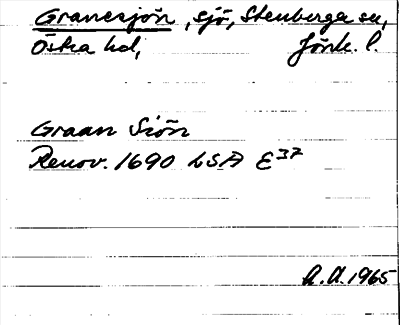 Granesjön, sjö, Stenberga sn,
Östra hd, Jönk. l.
Graan Siön
Renov. 1690 LSA E37
A.A. 1965